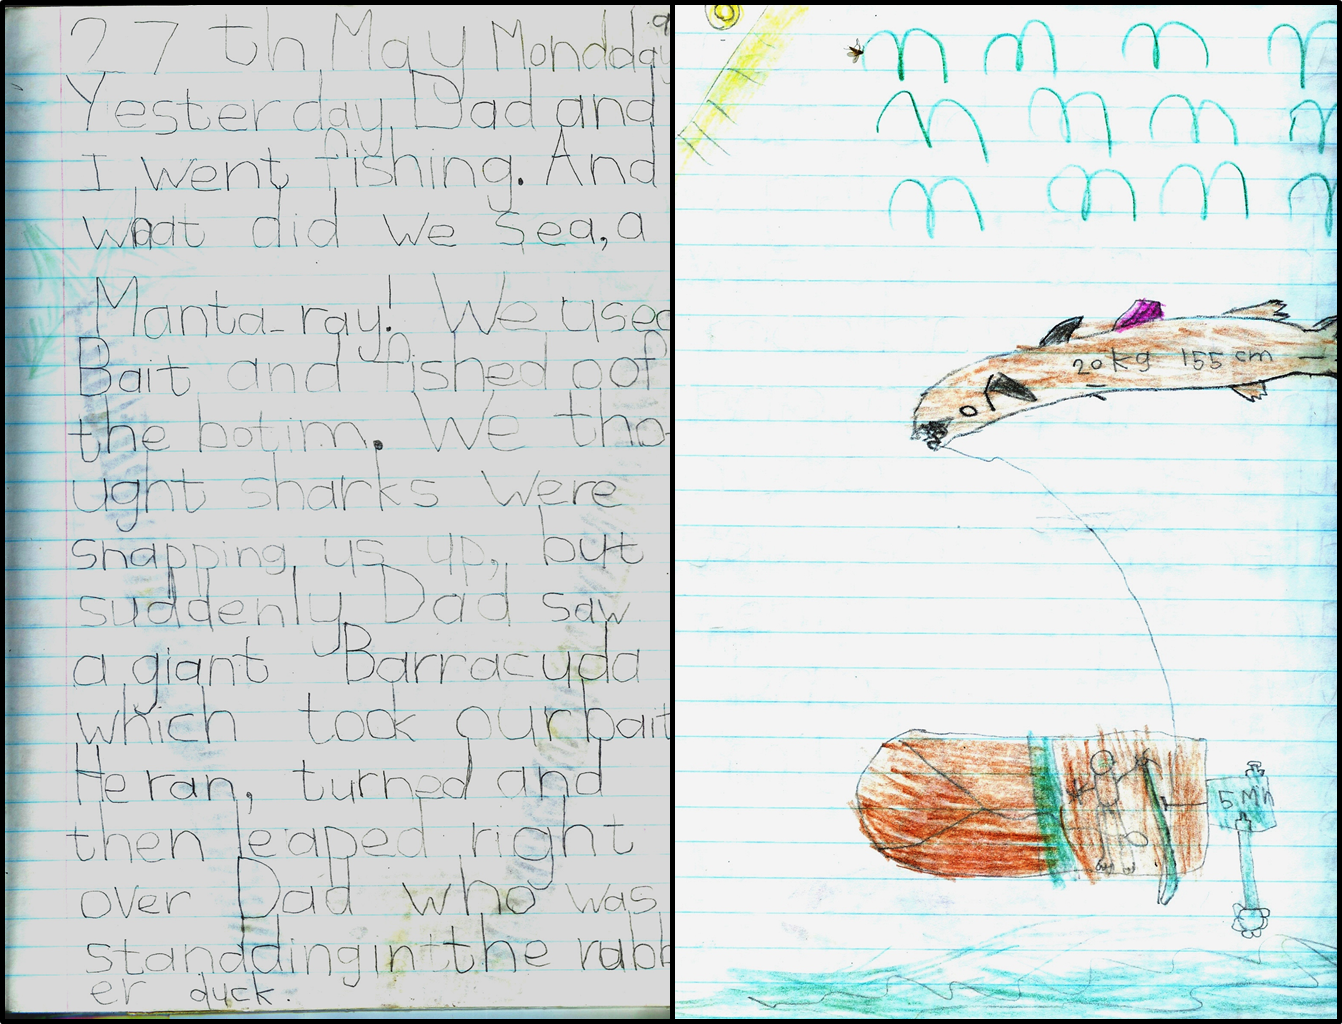 27th May Mondday
Yesterday Dad and
I went fishing. And
what did we sea, a
Manta-ray! We used
Bait and fished oof
the botim. We tho-
ught sharks were
snapping us up, but
suddenly Dad saw
a giant Barracuda
which took our bait
He ran, turned and
then leaped right
over Dad who was
standding in the rabb
er duck.
20kg 155 cm
5 Mh